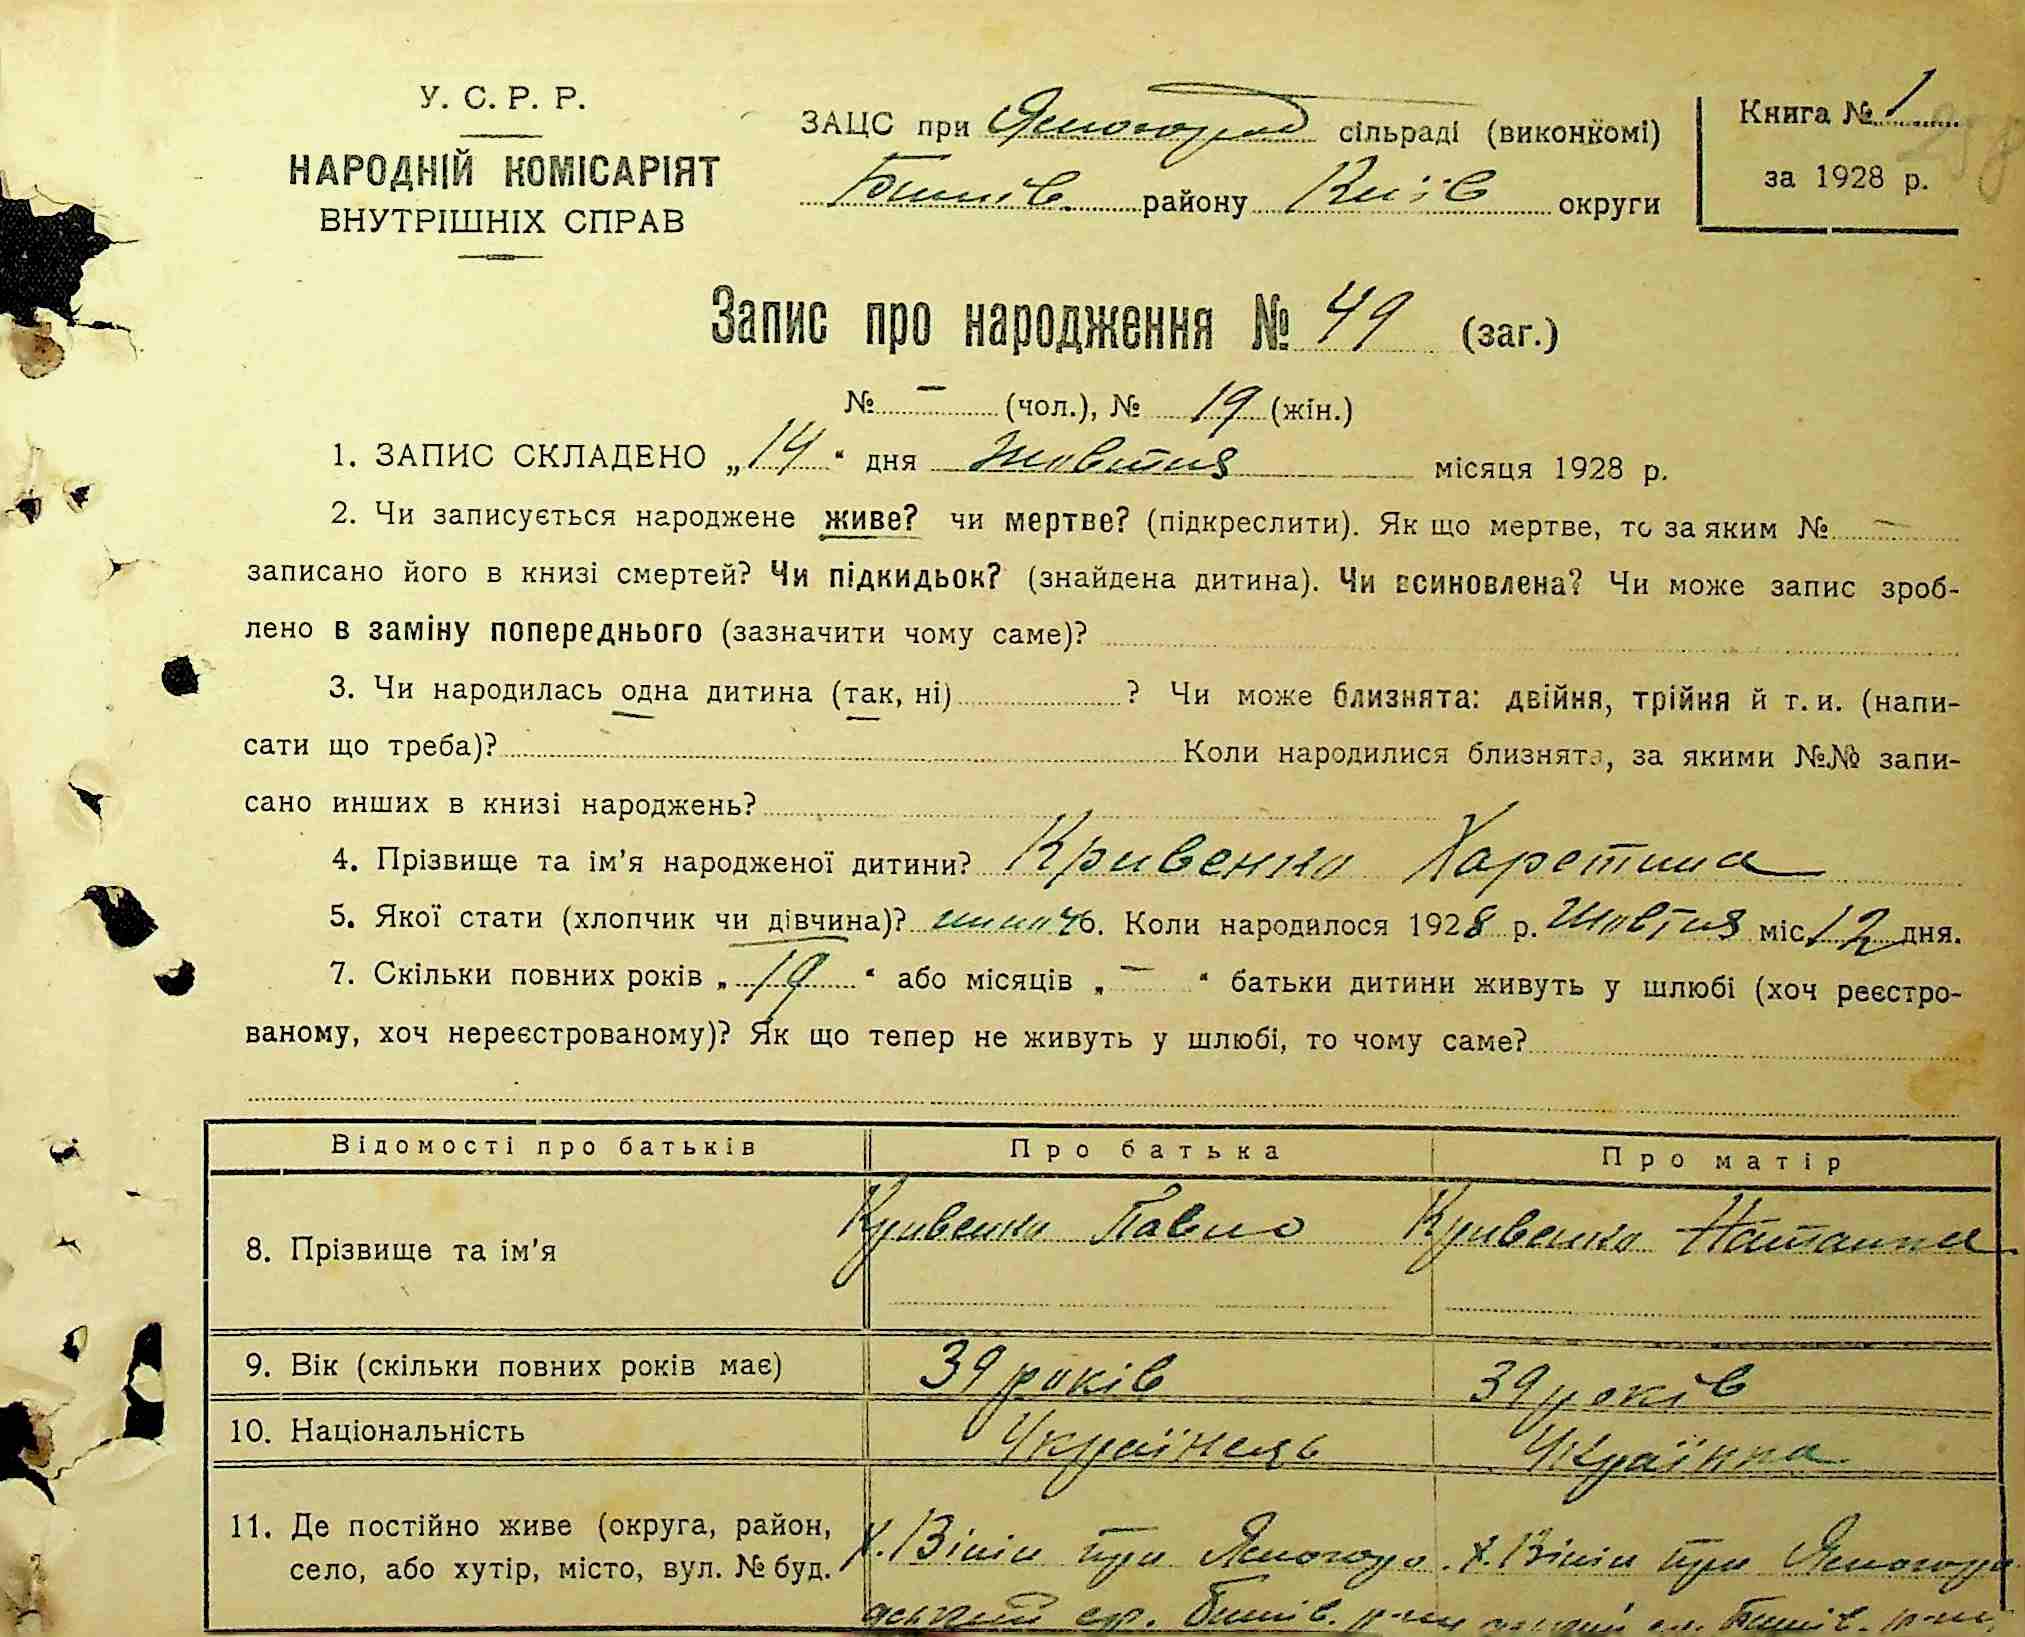 У. С. Р. Р.
НАРОДНІЙ КОМІСАРІЯТ
ВНУТРІШНІХ СПРАВ
ЗАЦС при Ясногород сільраді (виконкомі)
Бишів. району Київ округи
Книга № 1
258
за 1928 р.
Запис про народження № 49 (заг.)
№ — (чол.), № 19 (жін.)
1. ЗАПИС СКЛАДЕНО „14“ дня Жовтня місяця 1928 р.
2. Чи записується народжене живе? чи мертве? (підкреслити). Як що мертве, то за яким № —
записано його в книзі смертей? Чи підкидьок? (знайдена дитина). Чи всиновлена? Чи може запис зроб-
лено в заміну попереднього (зазначити чому саме)?
3. Чи народилась одна дитина (так, ні) ? Чи може близнята: двійня, трійня й т. и. (напи-
сати що треба)? Коли народилися близнята, за якими №№ запи-
сано инших в книзі народжень?
4. Прізвище та ім'я народженої дитини? Кривенко Харетина
5. Якої стати (хлопчик чи дівчина)? 6. Коли народилося 1928 р. Жовтня міс. 12 дня.
7. Скільки повних років „19“ або місяців „—“ батьки дитини живуть у шлюбі (хоч реєстро-
ваному, хоч нереєстрованому)? Як що тепер не живуть у шлюбі, то чому саме?
Відомості про батьків Про батька Про матір
8. Прізвище та ім'я Кривенко Павло Кривенко Наталка
9. Вік (скільки повних років має) 39 років 39 років
10. Національність Українець Українка
11. Де постійно живе (округа, район,
село, або хутір, місто, вул. № буд.
х. Віпін при Ясногоро х. Віпін при Ясногоро
дський с/р. Бишів. р-ну Бишів. р-ну